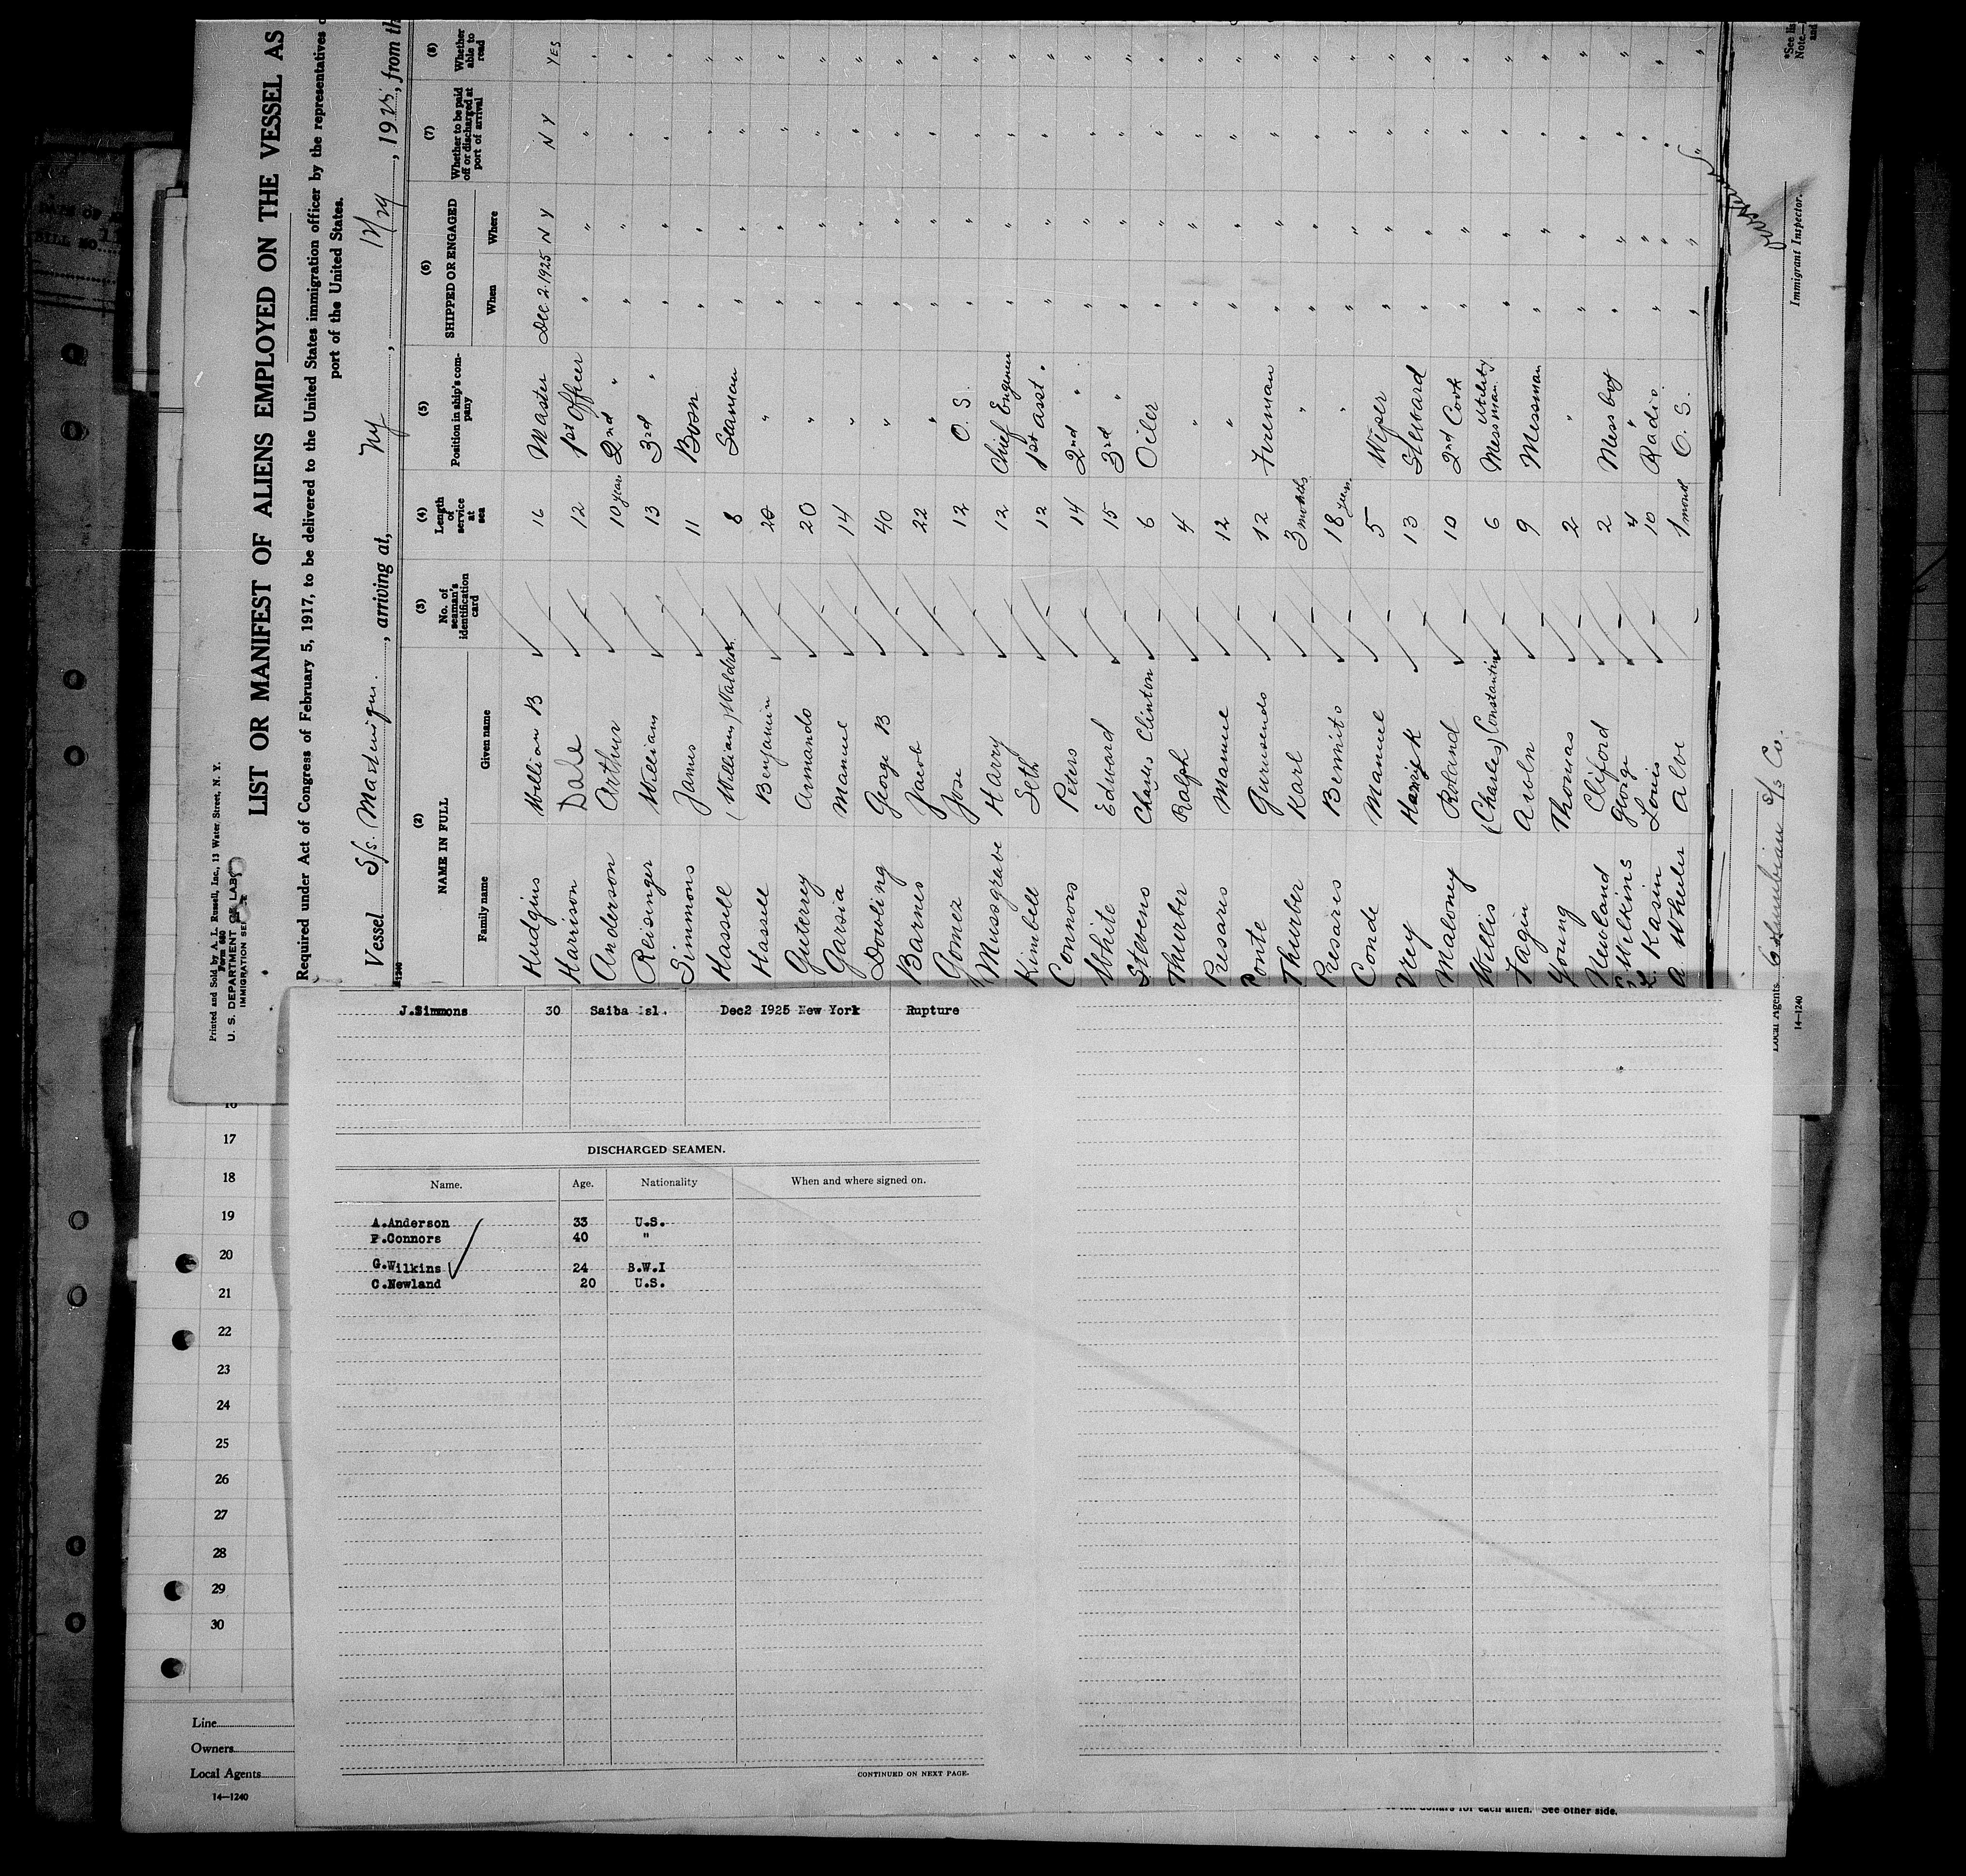 Printed and Sold by A. L. Russell, Inc., 13 Water Street, N. Y.
Form 680
U. S. DEPARTMENT OF LABOR
IMMIGRATION SERVICE
LIST OR MANIFEST OF ALIENS EMPLOYED ON THE VESSEL AS
Required under Act of Congress of February 5, 1917, to be delivered to the United States immigration officer by the representatives
port of the United States.
Vessel S/s. Martinique., arriving at, NY, 12/29, 1925, from th
(2) NAME IN FULL (3) No. of seaman's identification card (4) Length of service at sea (5) Position in ship's company (6) SHIPPED OR ENGAGED (7) Whether to be paid off or discharged at port of arrival (8) Whether able to read
Family name Given name When Where
Hudgins William B 16 Master Dec 2 1925 N Y N Y YES
Harrison Dale 12 1st Officer " " " "
Anderson Arthur 10 years 2nd " " " " "
Reisinger William 13 3rd " " " " "
Simmons James 11 Bosn " " " "
Hassell (William) Waldron 8 Seaman " " " "
Hassell Benjamin 20 " " " " "
Guterry Armando 20 " " " " "
Garsia Manuel 14 " " " " "
Dowling George B 40 " " " " "
Barnes Jacob 22 " " " " "
Gomez Jose 12 O. S. " " " "
Mussgrave Harry 12 Chief Engineer " " " "
Kimbell Seth 12 1st asst. " " " "
Connors Peters 14 2nd " " " " "
White Edward 15 3rd " " " " "
Stevens Charles Clinton 6 Oiler " " " "
Thurber Ralph 4 " " " " "
Presaris Manuel 12 " " " " "
Ponte Gumsendo 12 Fireman " " " "
Thurber Karl 3 months " " " " "
Presaris Bernito 18 years " " " " "
Conde Manuel 5 Wiper " " " "
Vrey Harry K 13 Steward " " " "
Maloney Roland 10 2nd Cook " " " "
Willis (Charles) Constantine 6 Utility Messman " " " "
Fagin 9 Messman " " " "
Young Thomas 2 " " " " "
Newland Cliford 2 Mess boy " " " "
Wilkins George 4 " " " " "
Kasin Louis 10 Radio " " " "
A. Wheeler Alve 1 month O. S. " " " "
Immigrant Inspector.
*See lis
Note.—
and
Local Agents Columbian S/s Co.
14—1240
J.Simmons 30 Saiba Isl. Dec2 1925 New York Rupture
DISCHARGED SEAMEN.
Name. Age. Nationality When and where signed on.
A.Anderson 33 U.S.
P.Connors 40 "
G.Wilkins 24 B.W.I
C.Newland 20 U.S.
CONTINUED ON NEXT PAGE.
16
17
18
19
20
21
22
23
24
25
26
27
28
29
30
Line
Owners
Local Agents
14—1240
ten dollars for each alien. See other side.